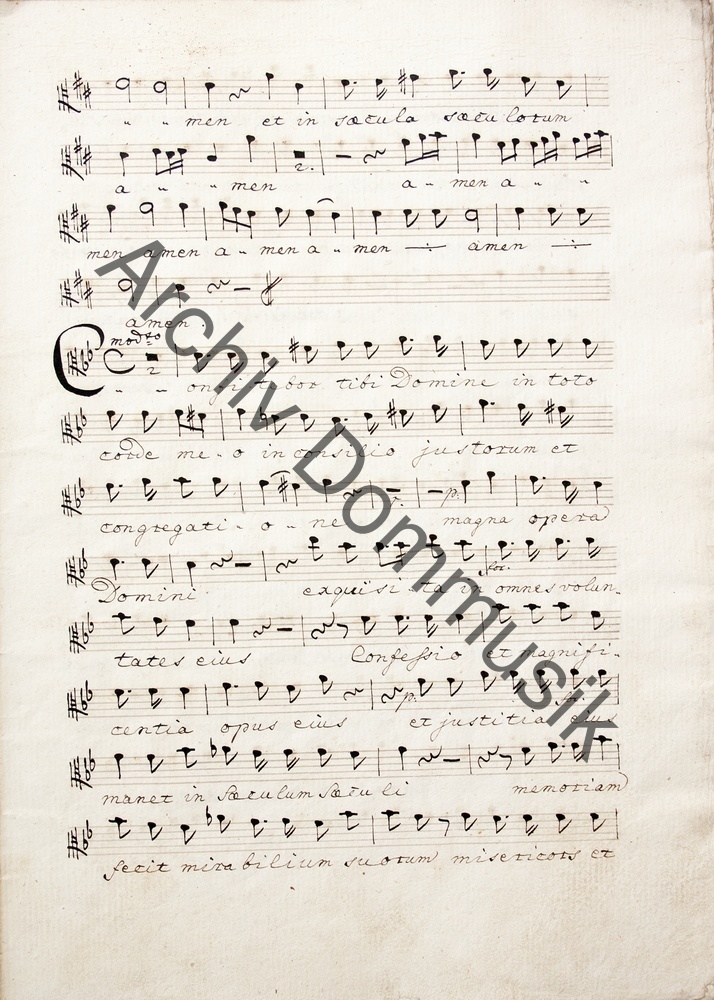 " " men et in sæcula sæculorum
a " " men a - men a " "
men amen a - men a - men amen
amen.
modto
2
Confitebor tibi Domine in toto
corde me - o in consilio justorum et
congregati - o - ne p: magna opera
Domini exquisi - ta in for: omnes volun -
tates eius Confessio et magnifi -
centia opus eius p: et justitia eius
manet in sæculum sæculi memoriam
fecit mirabilium suorum misericors et
Archiv Dommusik